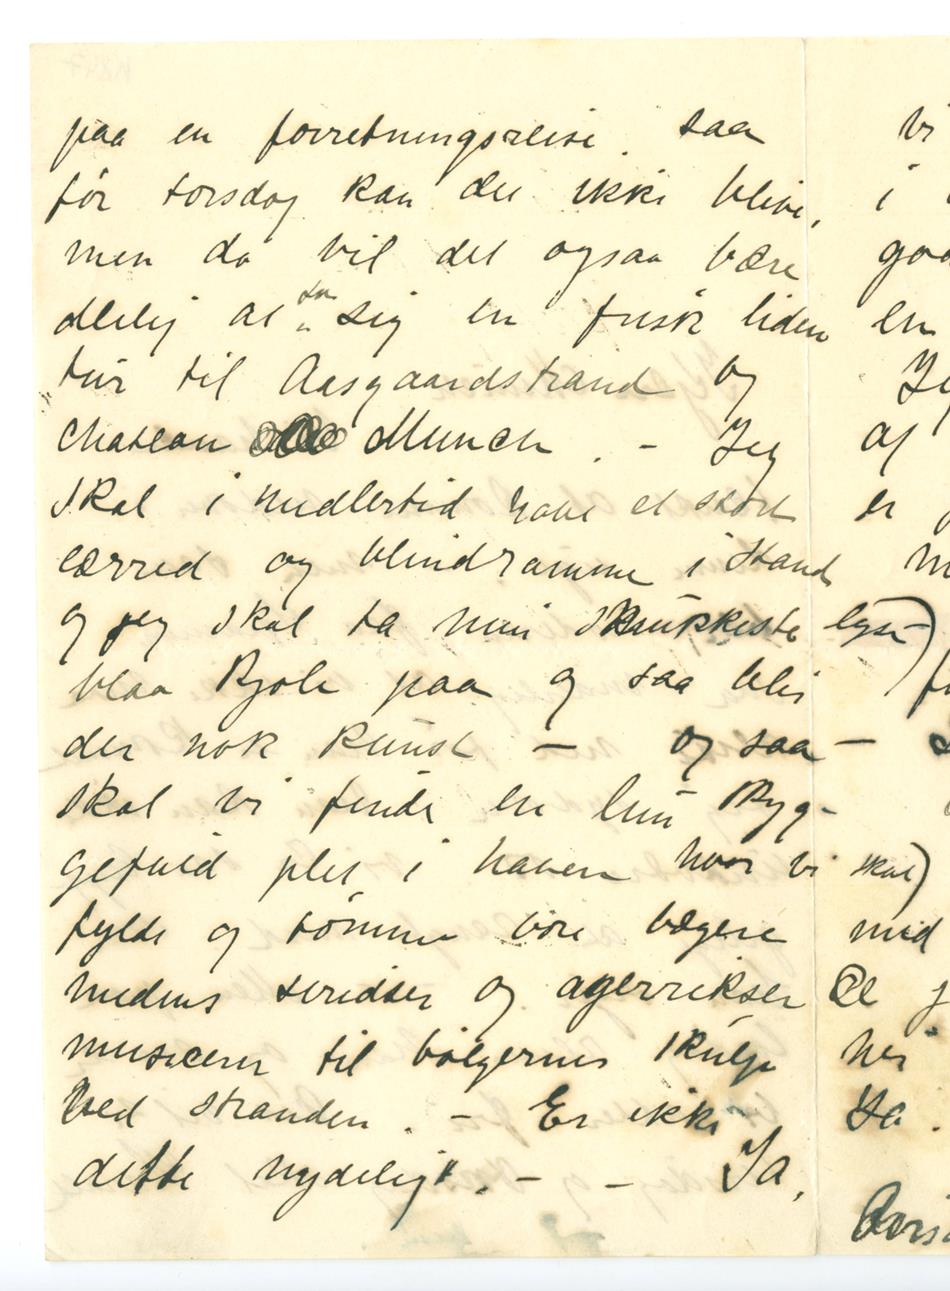 paa en forretningsreise. saa
før torsdag kan det ikke blive,
men da vil det ogsaa være
deilig at ta sig en frisk liden
tur til Aasgaardstrand og
Chateau Munch. – Jeg
skal imidlertid have et stort
lærred og blindramme istand
og jeg skal ta min smukkeste lyse
blaa Kjole paa og saa blir
der nok kunst – og saa –
skal vi finde en lun skyg-
gefuld plet i haven hvor vi skal
fylde og tømme vore bægere
medens siridser og agerrikser
musicerer til bølgernes skulp
ved stranden. – Er ikke
dette nydeligt. – – Ja,
vi
i
en
Jeg
af
er
med
Ja.